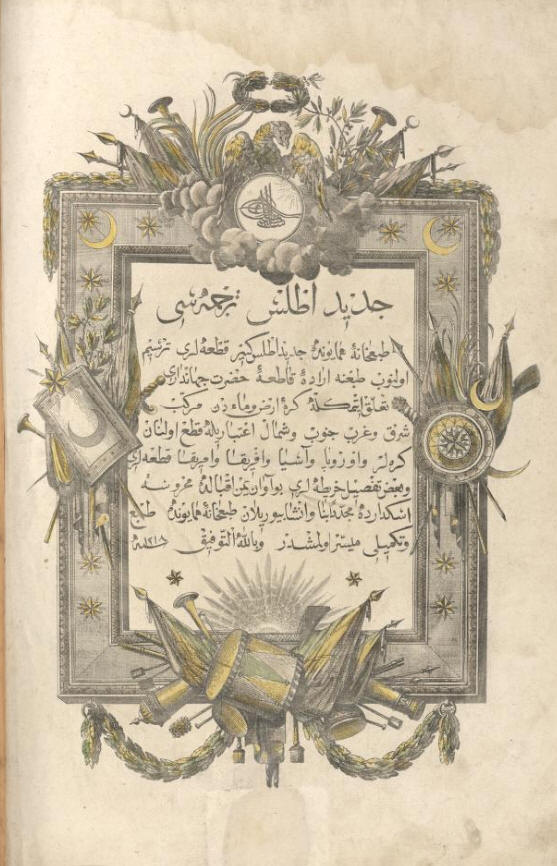 جديد اطلس ترجمه سى
طبعخانۀ همايونده جديد اطلس كبير قطعه لرى ترسيم
اولنوب طبعنه ارادۀ قاطعۀ حضرت جهاندارى
تعلق ايتمكله كرۀ ارض وماءدن مركب
شرق وغرب جنوب وشمال اعتباريله قطع اولنان
كره لر واوروپا وآسيا وافريقا وامريقا قطعه لرى
وبعض تفصيل خريطه لرى بو آوان يمن اقبالده محروسۀ
اسكدارده مجددًا بنا وانشا بيوريلان طبعخانۀ همايونده طبع
وتكميلى ميسر اولمشدر وبالله التوفيق سنه ١٢١٨